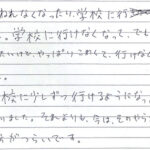 ねれなくなったり、学校に行
。学校に行けなくなって、でも
たいけど、やっぱりこわくて、行けなく

校に少しずつ行けるようになっ
いました。それよりも、今は、そのやう
がつらいです。